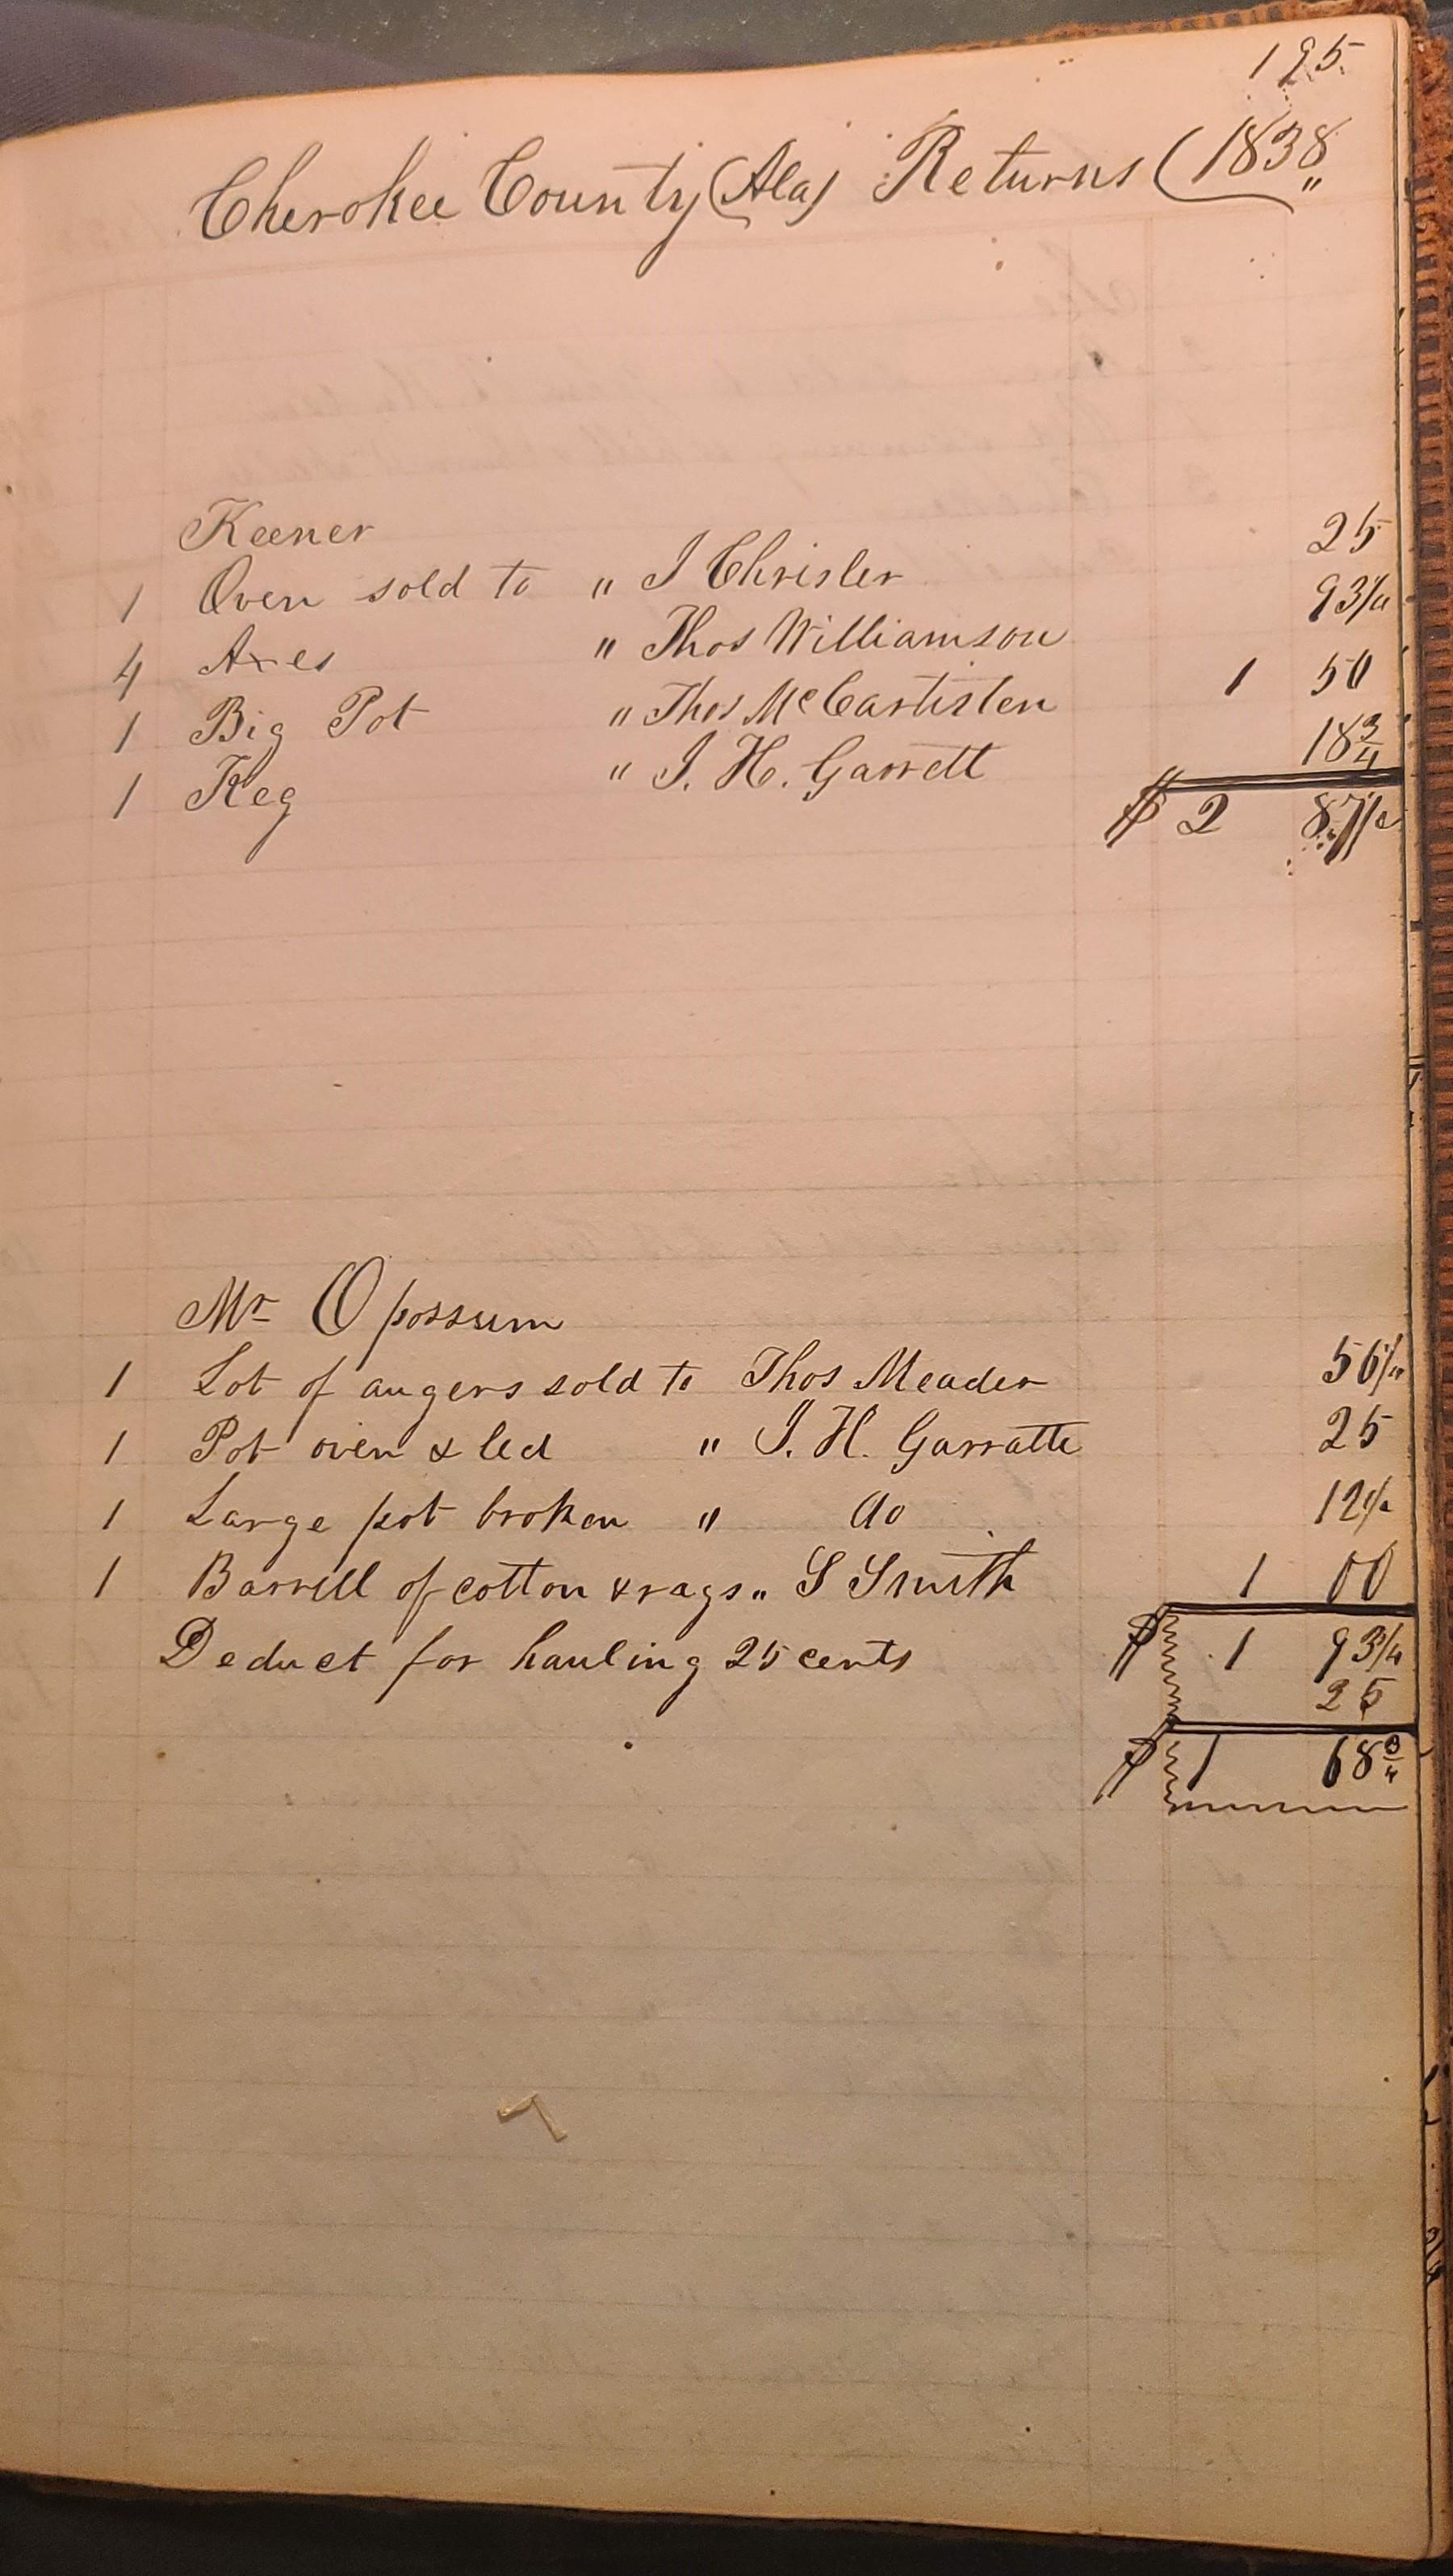 195.
Cherokee County (Ala) Returns (1838"
Keener
1 Oven sold to " J Chrisler 25
4 Axes " Thos Williamson 93 3/4
1 Big Pot " Thos McCartisten 1 50
1 Keg " J. H. Garrett 18 3/4
$ 2 87 1/2
Mr Opossum
1 Lot of augers sold to Thos Meader 56 1/4
1 Pot oven & led " J. H. Garratte 25
1 Large pot broken " do 12 1/2
1 Barrell of cotton & rags " S Smith 1 00
Deduct for hauling 25 cents $ 1 93 3/4
25
$ 1 68 3/4